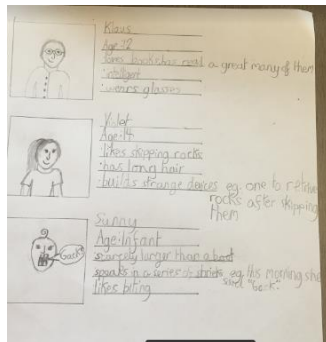 Klaus
Age:12
loves books has read a great many of them
·intelligent
·wears glasses
Violet
Age:14
·likes skipping rocks
·has long hair
·builds strange devices eg. one to retrive
rocks after skipping
them
Gack!
Sunny
Age:Infant
scarcely larger than a boot
speaks in a series of shrieks eg. this morning she
said "Gack".
likes biting